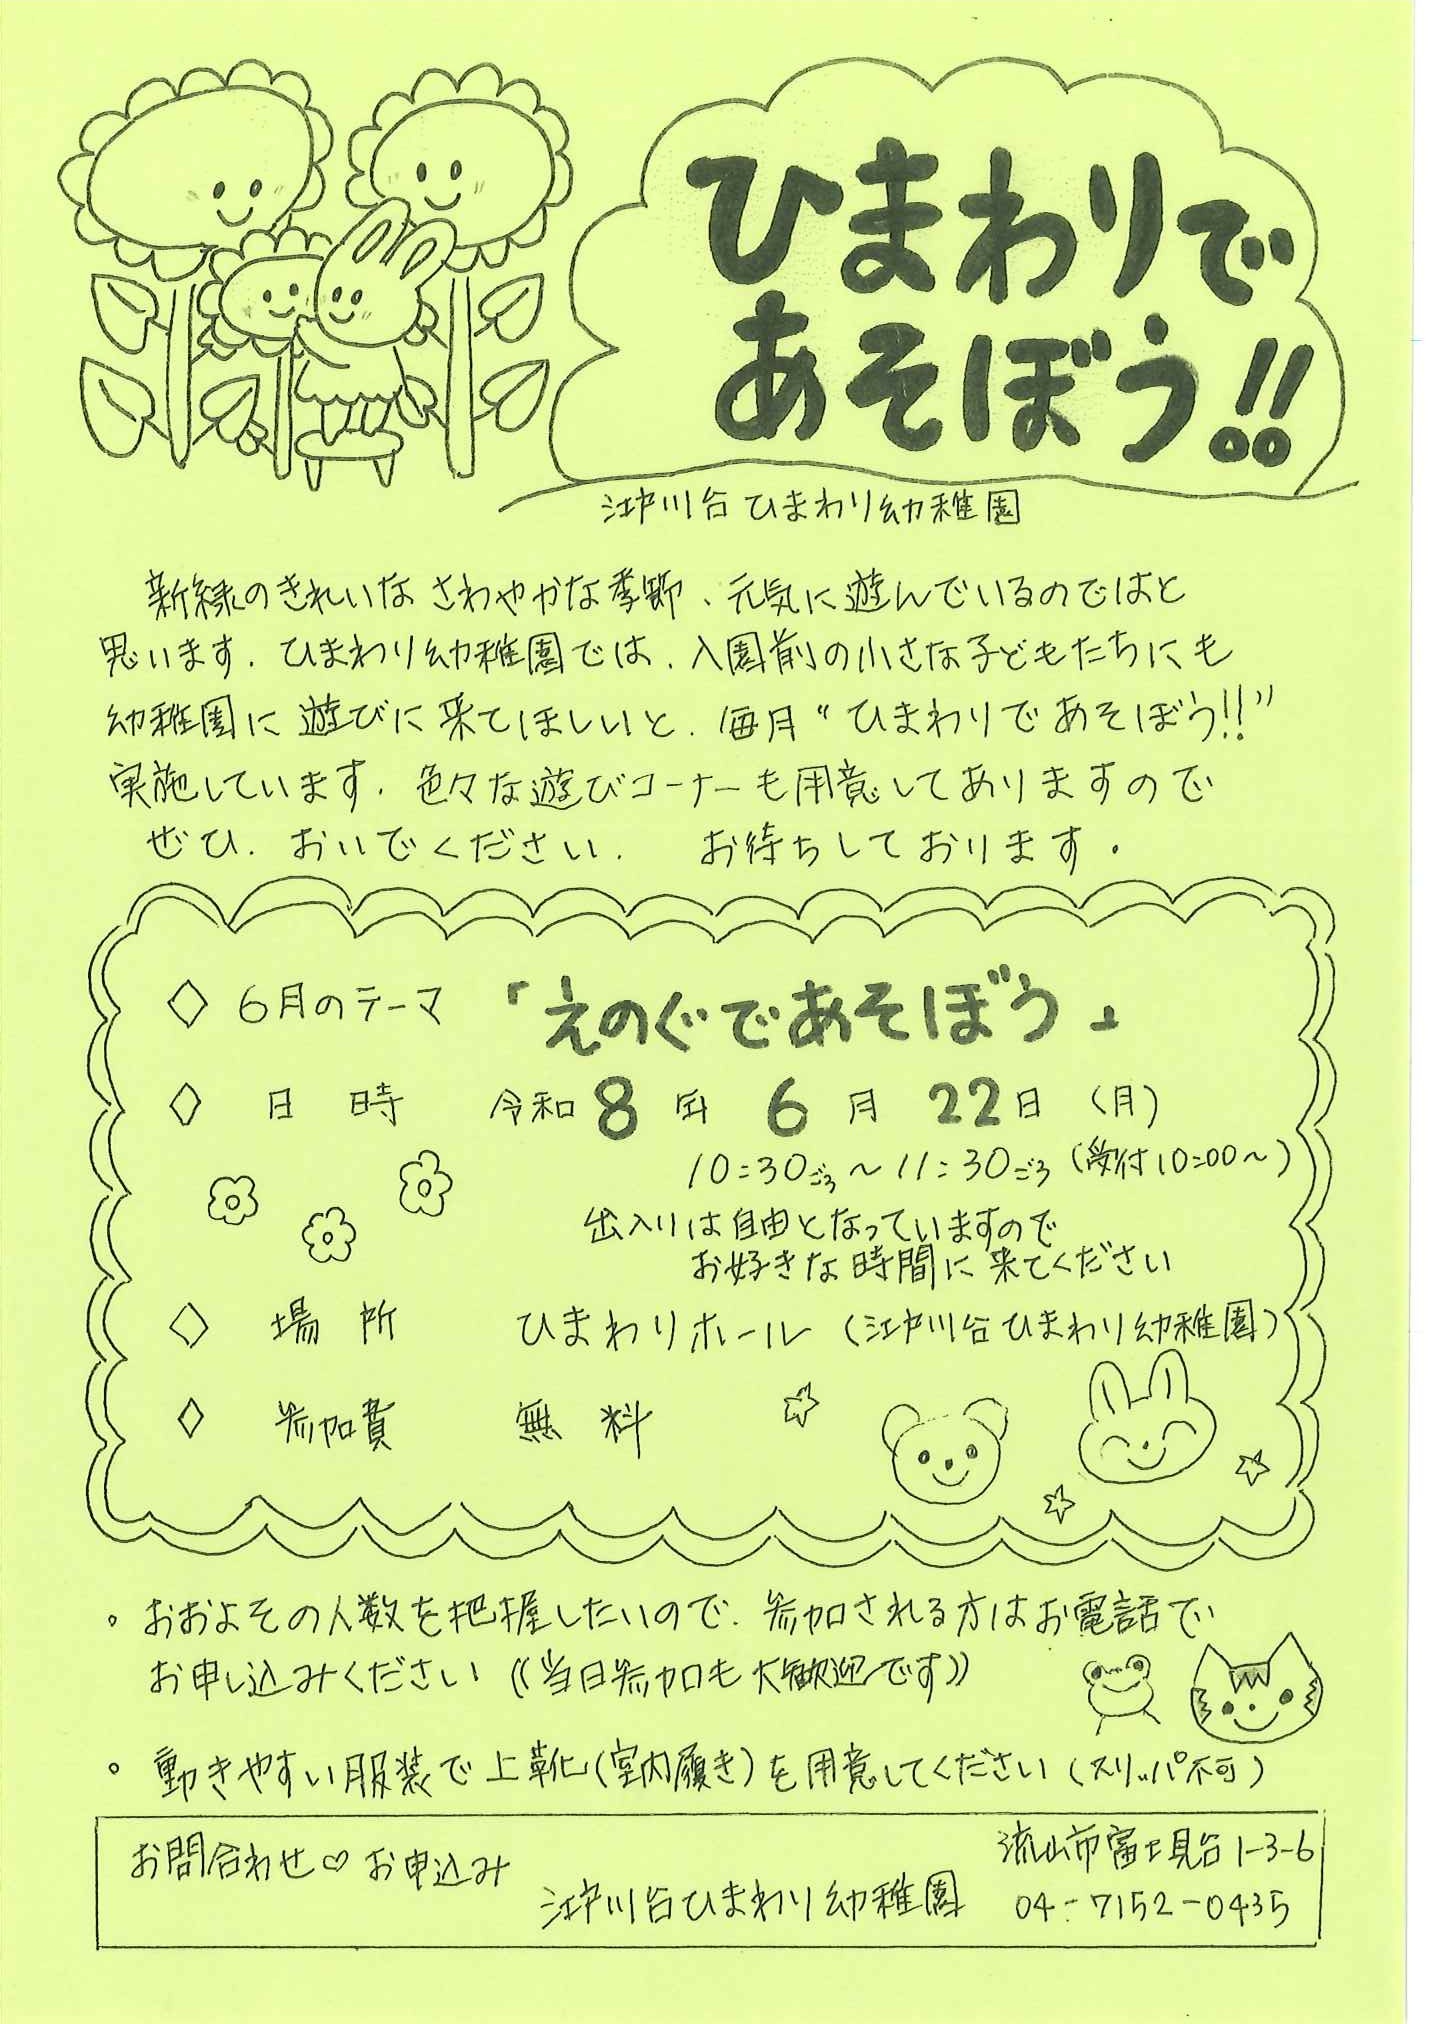 ひまわりで
あそぼう!!
江戸川台ひまわり幼稚園
新緑のきれいな さわやかな季節、元気に遊んでいるのではと
思います。ひまわり幼稚園では、入園前の小さな子どもたちにも
幼稚園に遊びに来てほしいと、毎月“ひまわりであそぼう!!”
実施しています。色々な遊びコーナーも用意してありますので
ぜひ、おいでください。 お待ちしております。
◇ 6月のテーマ 「えのぐであそぼう」
◇ 日時 令和8年 6月 22日 (月)
10:30ごろ～11:30ごろ (受付10:00～)
出入りは自由となっていますので
お好きな時間に来てください
◇ 場所 ひまわりホール (江戸川台ひまわり幼稚園)
◇ 参加費 無料
。おおよその人数を把握したいので、参加される方はお電話で
お申し込みください ((当日参加も大歓迎です))
。動きやすい服装で上靴(室内履き)を用意してください (スリッパ不可)
お問合わせ♡お申込み 流山市富士見台1-3-6
江戸川台ひまわり幼稚園 04-7152-0435